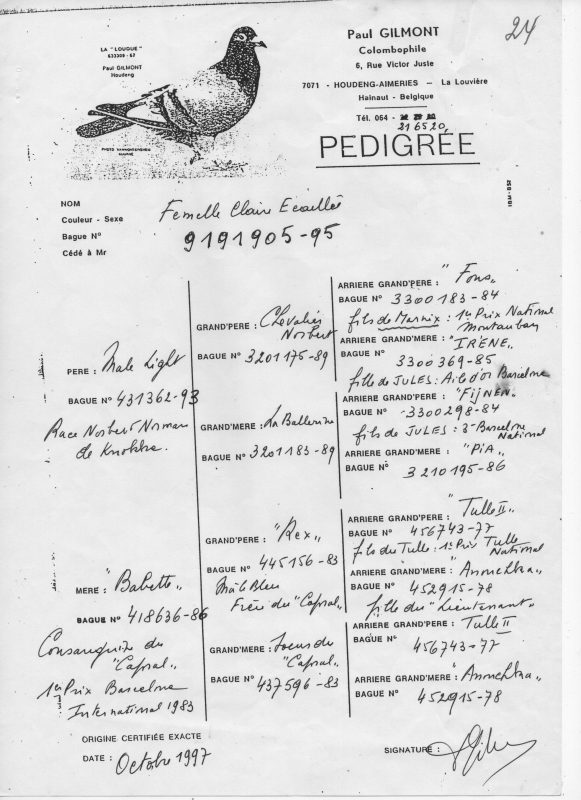 24
LA "LOUQUE"
633308 - 67
Paul GILMONT
Houdeng
Paul GILMONT
Colombophile
6, Rue Victor Juste
7071 - HOUDENG-AIMERIES - La Louvière
Hainaut - Belgique
Tél. 064 -
216520
PEDIGRÉE
NOM
Couleur - Sexe
Femelle Claire Ecaillée
Bague N°
9191905-95
Cédé à Mr
PERE : Male Light
BAGUE N° 431362-93
Race Norbert Norman
de Knokke.
MERE : "Babette"
BAGUE N° 418636-86
Consanguine du
"Capral"
1er Prix Barcelone
International 1983
GRAND'PERE : Chevalier
Norbert
BAGUE N° 3201175-89
GRAND'MERE : La Ballerine
BAGUE N° 3201183-89
GRAND'PERE : "Rex"
BAGUE N° 445156-83
Mâle Bleu
Frère du "Capral"
GRAND'MERE : Soeur du
"Capral"
BAGUE N° 437596-83
ARRIERE GRAND'PERE : "Fons"
BAGUE N° 3300183-84
fils de Marnix : 1er Prix National
Montauban
ARRIERE GRAND'MERE : "IRÈNE"
BAGUE N° 3300369-85
fille de JULES : Aile d'or Barcelone
ARRIERE GRAND'PERE : "FijNEN"
BAGUE N° 3300298-84
fils de JULES : 3e Barcelone
National
ARRIERE GRAND'MERE : "PiA"
BAGUE N° 3210195-86
ARRIERE GRAND'PERE : "Tulle II"
BAGUE N° 456743-77
fils du Tulle : 1er Prix Tulle
National
ARRIERE GRAND'MERE : "Annuchka"
BAGUE N° 452915-78
fille du "Lieutenant"
ARRIERE GRAND'PERE : "Tulle II
BAGUE N° 456743-77
ARRIERE GRAND'MERE : "Annuchka"
BAGUE N° 452915-78
ORIGINE CERTIFIÉE EXACTE
DATE : Octobre 1997
SIGNATURE :